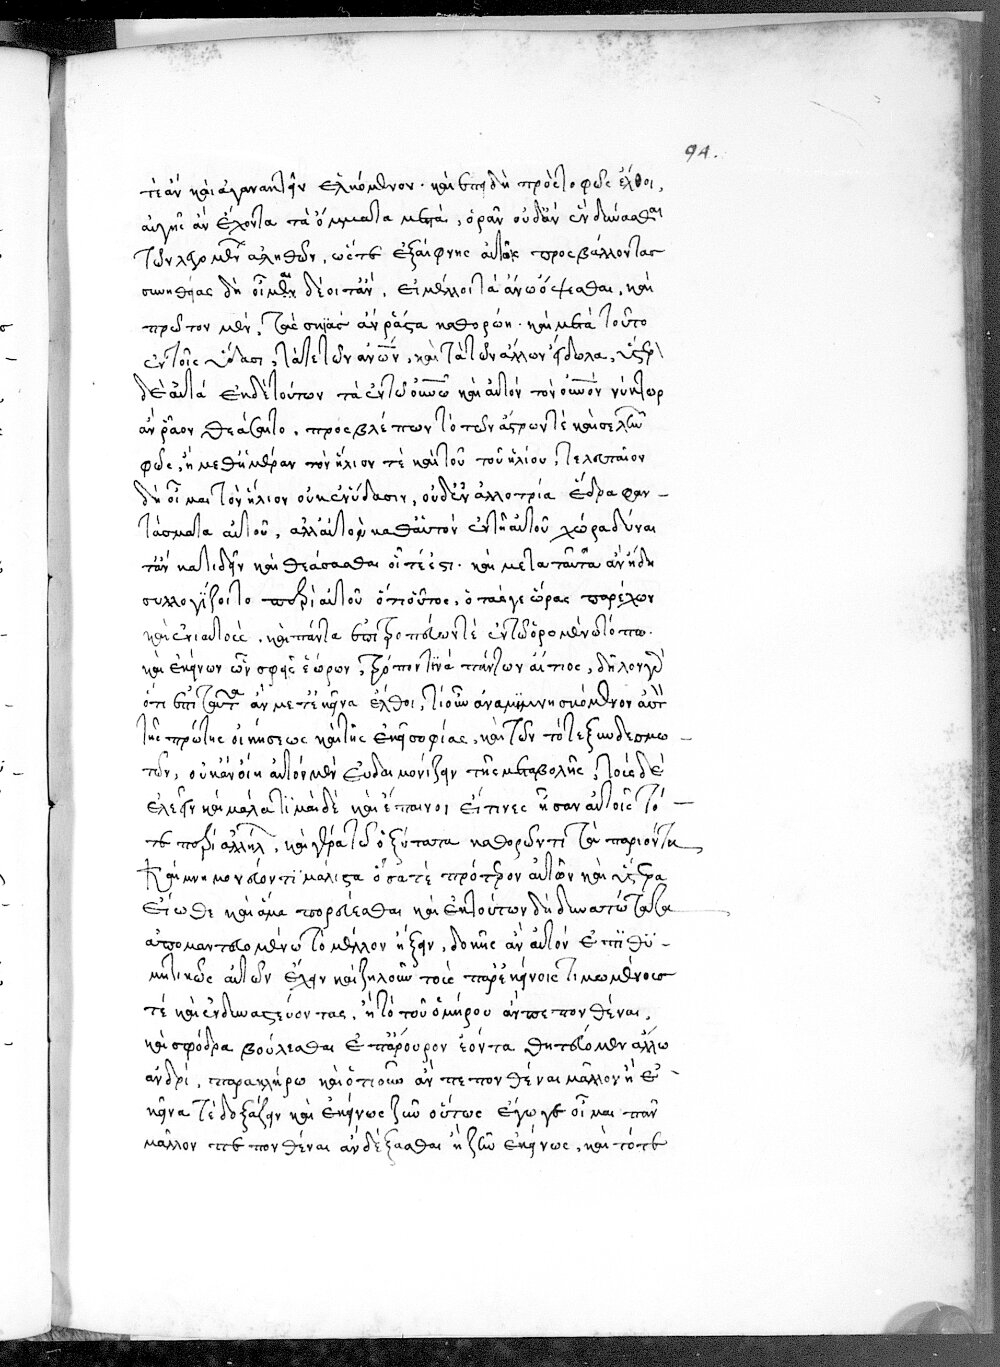 94.
τὲ ἂν καὶ ἀγανακτεῖν ἑλκόμενον· καὶ ἐπειδὴ πρὸς τὸ φῶς ἔλθοι,
αὐγῆς ἂν ἔχοντα τὰ ὄμματα μεστὰ, ὁρᾶν οὐδὲν ἂν δύνασθαι
τῶν λεγομένων ἀληθῶν, ὥστε ἐξαίφνης προσβάλλοντας
συνηθείας δὴ οἶμαι δέοιτ' ἂν, εἰ μέλλοι τὰ ἄνω ὄψεσθαι, καὶ
πρῶτον μὲν, τὰς σκιάς ἂν ῥᾶστα καθορώη· καὶ μετὰ τοῦτο
ἐν τοῖς ὕδασι, τά τε τῶν ἀνῶν, καὶ τὰ τῶν ἄλλων εἴδωλα, ὕστερ
δὲ αὐτά ἐκ δὲ τούτων τὰ ἐν τῶ οὐνῶ καὶ αὐτόν τὸν οὐνὸν νύκτωρ
ἂν ῥᾶον θεάσαιτο, προσβλέπων τὸ τῶν ἄστρων τὲ καὶ σελήν
φῶς, ἢ μεθ' ἡμέραν τὸν ἥλιον τὲ καὶ τοῦ τοῦ ἡλίου, τελευταῖον
δὴ οἶμαι τὸν ἥλιον οὐκ ἐν ὕδασιν, οὐδ' ἐν ἀλλοτρία ἕδρα φαν-
τάσματα αὐτοῦ, ἀλλ' αὐτὸν καθ' αὑτὸν ἐν τῆ αὑτοῦ χώρα δύναι
τ' ἂν κατιδεῖν καὶ θεάσασθαι οἷος τέ ἐστι· καὶ μετα ταῦτα ἂν ἤδη
συλλογίζοιτο περὶ αὐτοῦ ὅτι οὗτος, ὁ τάς γε ὥρας παρέχων
καὶ ἐνιαυτοὺς, καὶ πάντα ἐπιτροπεύων τὲ ἐν τῶ ὁρομένω τόπω·
καὶ ἐκείνων ὧν σφεῖς ἑώρων, τρόπον τινὰ πάντων αἴτιος, δῆλον γὰρ
ὅτι ἐπὶ ταῦτα ἂν μετ' ἐκεῖνα ἔλθοι, τί οὖν ἀναμιμνησκόμενον αὐτ
τῆς πρώτης οἰκήσεως καὶ τῆς ἐκεῖ σοφίας, καὶ τῶν τότε ξυνδεσμω-
τῶν, οὐκ ἂν οἴει αὐτὸν μὲν εὐδαιμονίζειν τῆς μεταβολῆς, τοὺς δὲ
ἐλεεῖν καὶ μάλα τιμαὶ δὲ καὶ ἔπαινοι εἴ τινες ἦσαν αὐτοῖς τό-
τε παρ' ἀλλήλ, καὶ γέρα τῶ ὀξύτατα καθορῶντι τὰ παριόντα
καὶ μνημονεύοντι μάλιστα ὅσα τὲ πρότερον αὐτῶν καὶ ὕστερα
εἰώθει καὶ ἅμα πορεύεσθαι καὶ ἐκ τούτων δὴ δυνατώτατα
ἀπομαντευομένω τὸ μέλλον ἥξειν, δοκεῖς ἂν αὐτόν ἐπιθϋ-
μητικῶς αὐτῶν ἔχειν καὶ ζηλοῦν τοὺς παρ' ἐκείνοις τιμωμένους
τὲ καὶ ἐνδυναστεύοντας, ἢ τὸ τοῦ ὁμήρου ἄν πεπονθέναι,
καὶ σφόδρα βούλεσθαι ἐπάρουρον ἐόντα θητευέμεν ἄλλω
ἀνδρί, παρακλήρω καὶ ὁτιοῦν ἂν πεπονθέναι μᾶλλον ἢ ἐ-
κεῖνα τὲ δοξάζειν καὶ ἐκείνως ζῆν οὕτως ἔγωγε οἶμαι πᾶν
μᾶλλον πεπονθέναι ἂν δέξασθαι ἢ ζῆν ἐκείνως, καὶ τότε